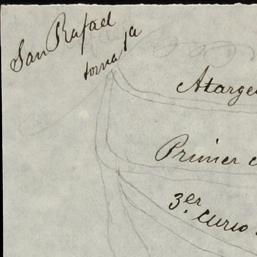 San Rafael
torna ta
Atarge
Primer c
3er
curso